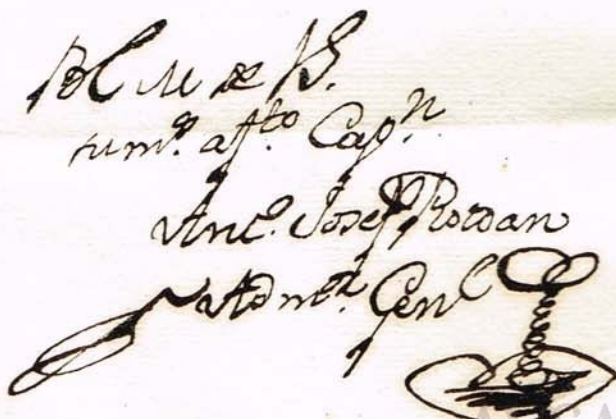 BL M de VS.
su mº. affto Capn.
Antº. Josef Roldan
Admor. Genl